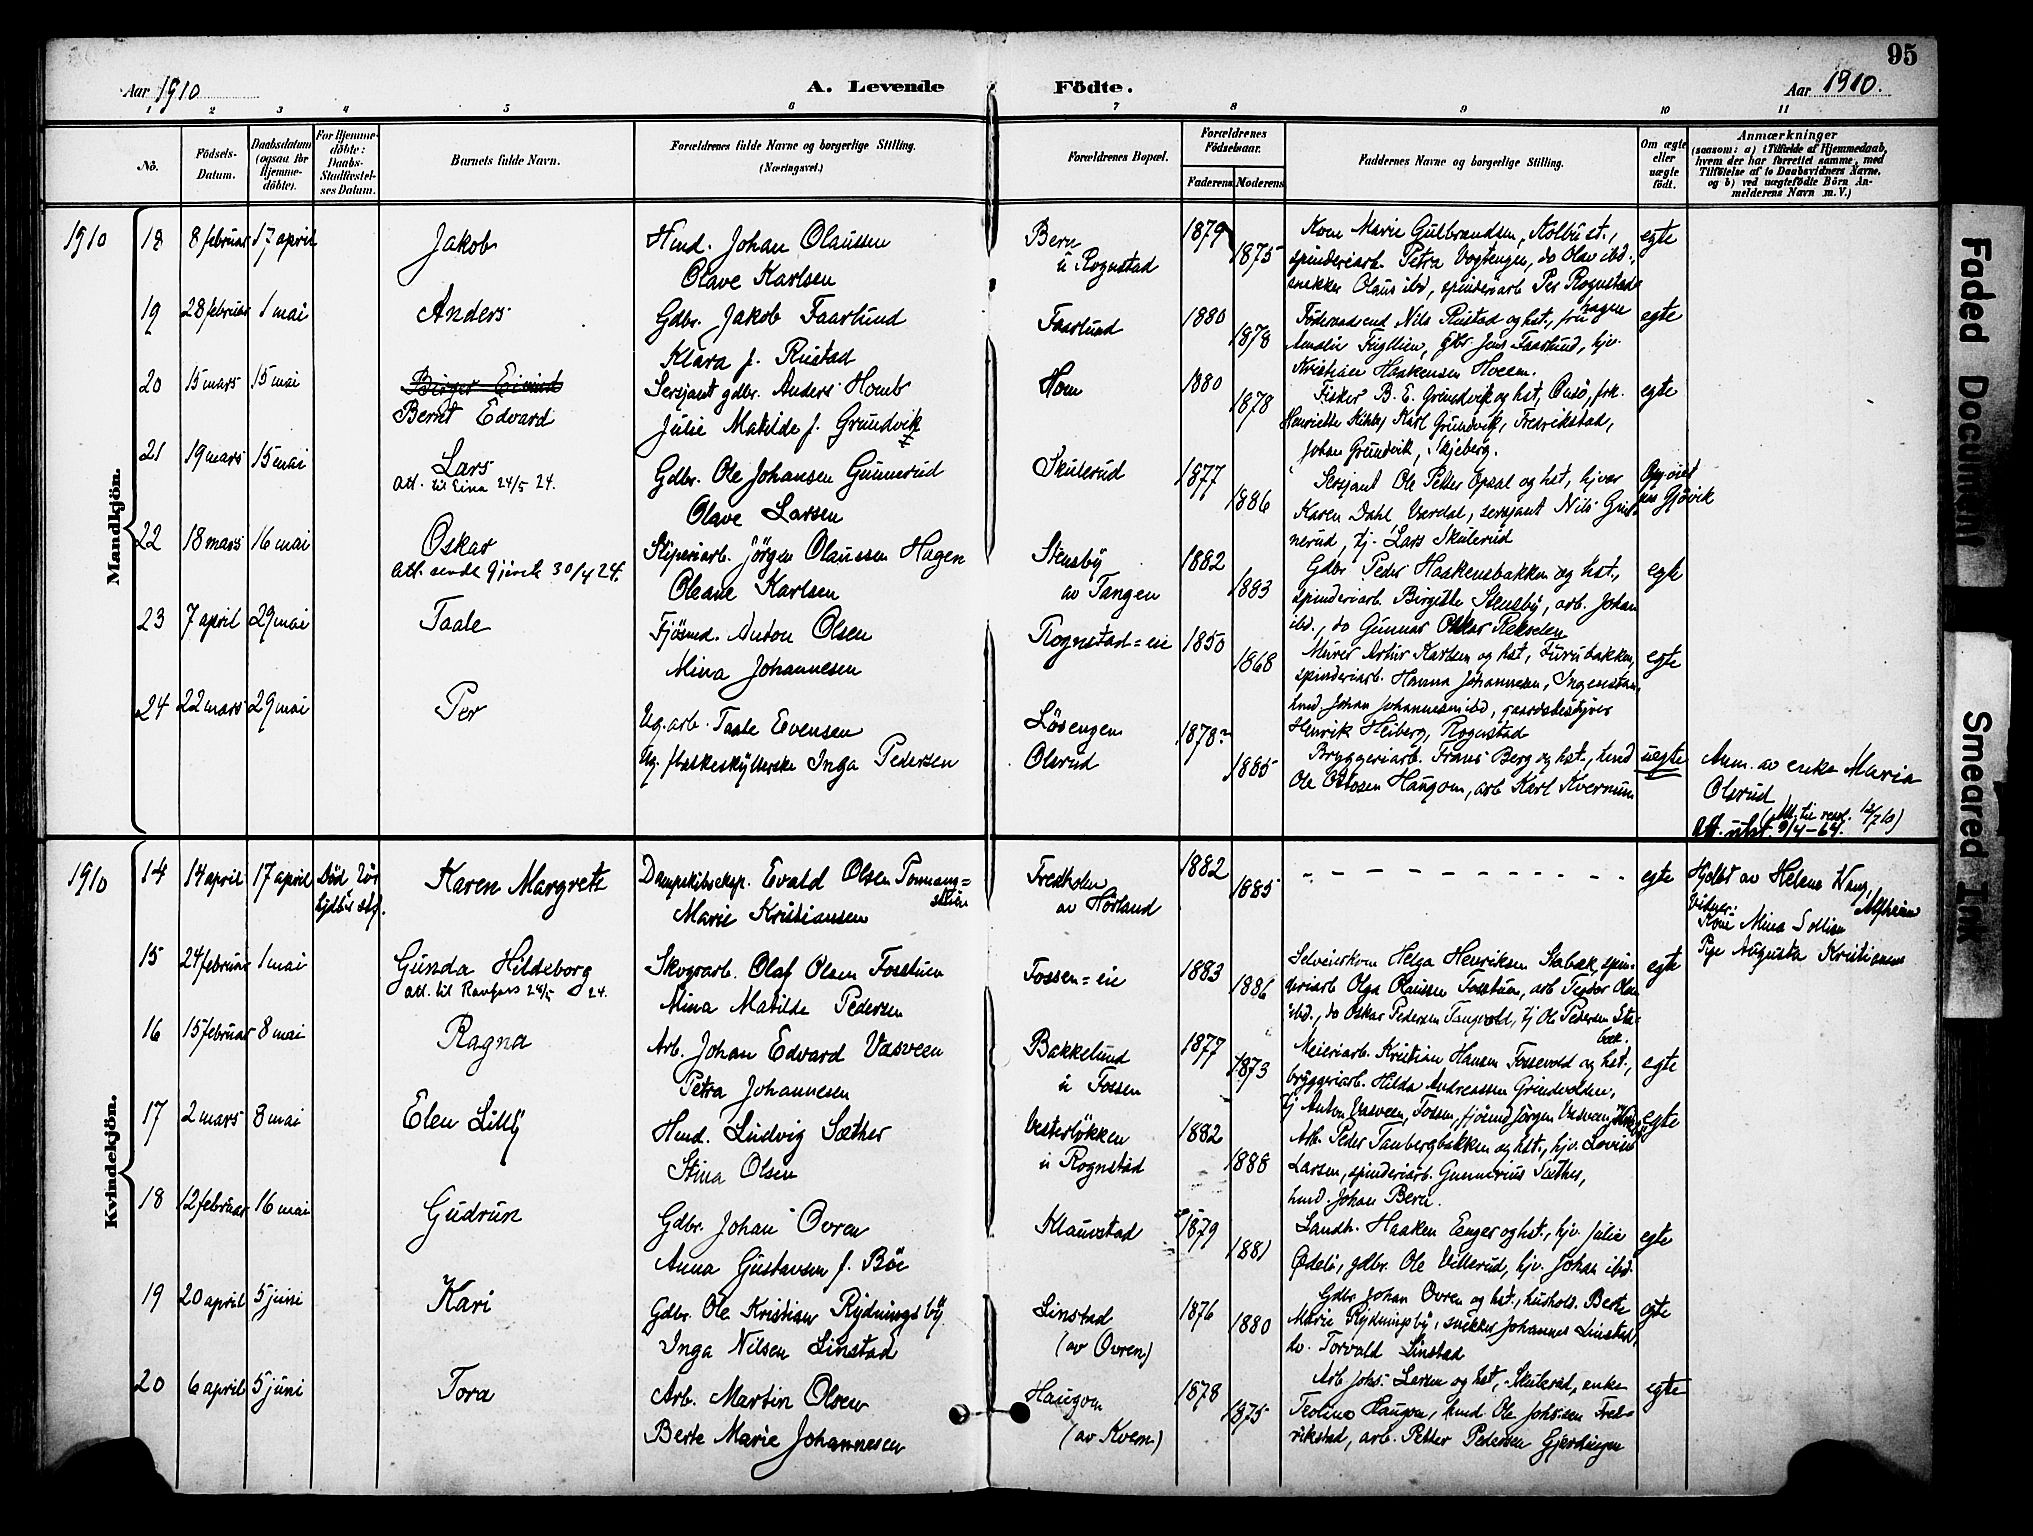 95
Aar 1910
A. Levende Födte.
Aar 1910.
1 2 3 4 5 6 7 8 9 10 11
No.
Födsels-Datum.
Daabsdatum (ogsaa for Hjemmedöbte).
For Hjemmedöbte: Daabs-Stadfæstelses Datum.
Barnets fulde Navn.
Forældrenes fulde Navne og borgerlige Stilling. (Næringsvei.)
Forældrenes Bopæl.
Forældrenes Födselsaar.
Faderens Moderens
Faddernes Navne og borgerlige Stilling.
Om ægte eller uægte født.
Anmærkninger
(saasom: a) i Tilfælde af Hjemmedaab, hvem der har forrettet samme, med Tilföielse af to Daabsvidners Navne, og b) ved uægtefödte Börn Anmelderens Navn m. V.)
Mandkjön.
1910 18 8 februar 17 april Jakob
Hmd. Johan Olaussen
Olave Karlsen
Bern
u Rognstad
1879 1875
Kone Marie Gulbrandsen, Kolbu st.,
spinderiarb. Petra Vogtengen, do Olav ibd.,
snekker Olaus ibd, spinderiarb Per Rognstad-
hagen
egte
19 28 februar 1 mai Anders
Gdbr. Jakob Faarlund
Klara f. Rustad
Faarlund
1880 1878
Föderaadsmd Nils Rustad og hst., fru
Amalie, gbr. Jens Faarlund, hjv.
Kristian Haakensen Hveem.
egte
20 15 mars 15 mai Birger Eivind
Bernt Edvard
Sersjant gdbr. Anders Homb
Julie Matilde f. Grundvik
Hom
1880 1878
Fisker B. E. Grundvik og hst, Onsö, frk.
Henriette Karl Grundvik, Fredrikstad,
Johan Grundvik, Skjeberg.
egte
21 19 mars 15 mai Lars
Att. til Eina 24/5 24.
Gdbr. Ole Johansen Gunnerud
Olave Larsen
Skulerud
1877 1886
Sersjant Ole Petter Opsal og hst, hjvær
Karen Dahl Værdal, sersjant Nils Gun-
nerud, tj. Lars Skulerud
Gjøvik
22 18 mars 16 mai Oskar
Att. sendt Gjøvik 30/4 24.
Sliperiarb. Jörgen Olaussen Hagen
Oleane Karlsen
Stensby
av Tangen
1882 1883
Gdbr. Peder Haakensbakken og hst.,
spinderiarb. Birgitte Stensby, arb. Johan
ibd., do Gunnar Oskar Rekselen
egte
23 7 april 29 mai Taale
Fjösmd. Anton Olsen
Mina Johannesen
Rognstad=eie
1850 1868
Murer Artur Karlsen og hst, Furubakken,
spinderiarb. Hanna Johannesen, Ingenstan,
hmd. Johan Johannesen ibd, gaardsbestyrer
Henrik Heiberg, Rognstad
egte
24 22 mars 29 mai Per
Ug. arb. Taale Evensen
Ug. flaskeskyllerske Inga Pedersen
Lösengen
Olsrud
1878? 1885
Bryggeriarb. Frans Berg og hst., hmd
Ole Olosen Haugom, arb Karl Kvernum
uegte
Anm. av enke Maria
Olsrud
(Att. til resd. 12/7 10)
Att. utst. 9/4-64.
Kvindekjön.
1910 14 14 april 17 april
Karen Margrete
Dampskibseksp. Evald Olsen
Marie Kristiansen
Fredholm
av Hörland
1882 1885
- - - - - - - - - - - -
egte
Hjdbt av Helene Wang,
Alfheim
Vidner:
Kone Mina Sollien
Pge Augusta Kristiansen
15 24 februar 1 mai Gunda Hildeborg
Att. til Raufoss 28/5 24.
Skogsarb. Olaf Olsen Fosstuen
Mina Matilde Pedersen
Fossen=eie
1883 1886
Selveierkone Helga Henriksen Stabæk, spin-
deriarb Olga Olaussen Fosstuen, arb Teodor Olsen
ibd., do Oskar Pedersen Tangvold, tj Ole Pedersen Sta-
bæk.
egte
16 15 februar 8 mai Ragna
Arb. Johan Edvard Vasveen
Petra Johannesen
Bakkelund
u Fossen
1877 1873
Meieriarb. Kristian Hansen Fossevold og hst.,
bryggeriarb. Hilda Andreassen Grindvolden,
tj Anton Vasveen, Fossen, fjösmd Jörgen Vasveen,
egte
17 2 mars 8 mai Elen Lilly
Hmd. Ludvig Sæther
Stina Olsen
Vesterløkken
u Rognstad
1882 1888
Arb. Peder Taubergbakken og hst., hjv. Lovise
Larsen, spinderiarb. Gunnerius Sæther,
hmd. Johan Bern.
egte
18 12 februar 16 mai Gudrun
Gdbr. Johan Ovren
Anna Gustavsen f. Böe
Klauvstad
1879 1881
Landh. Haaken Eenger og hst., hjv. Julie
Ødelö, gdbr. Ole Villerud, hjv. Johan ibd.
egte
19 20 april 5 juni Kari
Gdbr. Ole Kristian Rydningsby
Inga Nilsen Linstad
Linstad
(av Ovren)
1876 1880
Gdbr Johan Ovren og hst., hushold. Berte
Marie Rydningsby, snekker Johannes Linstad,
do. Torvald Linstad
egte
20 6 april 5 juni Tora
Arb. Martin Olsen
Berte Marie Johannesen
Haugom
(av Kvem)
1878 1875
Arb. Johs. Larsen og hst, Skulerud, enke
Teoline Haugom, hmd. Ole Johnsen Fred-
rikstad, arb. Petter Pedersen Gjerdingen
egte
Faded Document
Smeared Ink